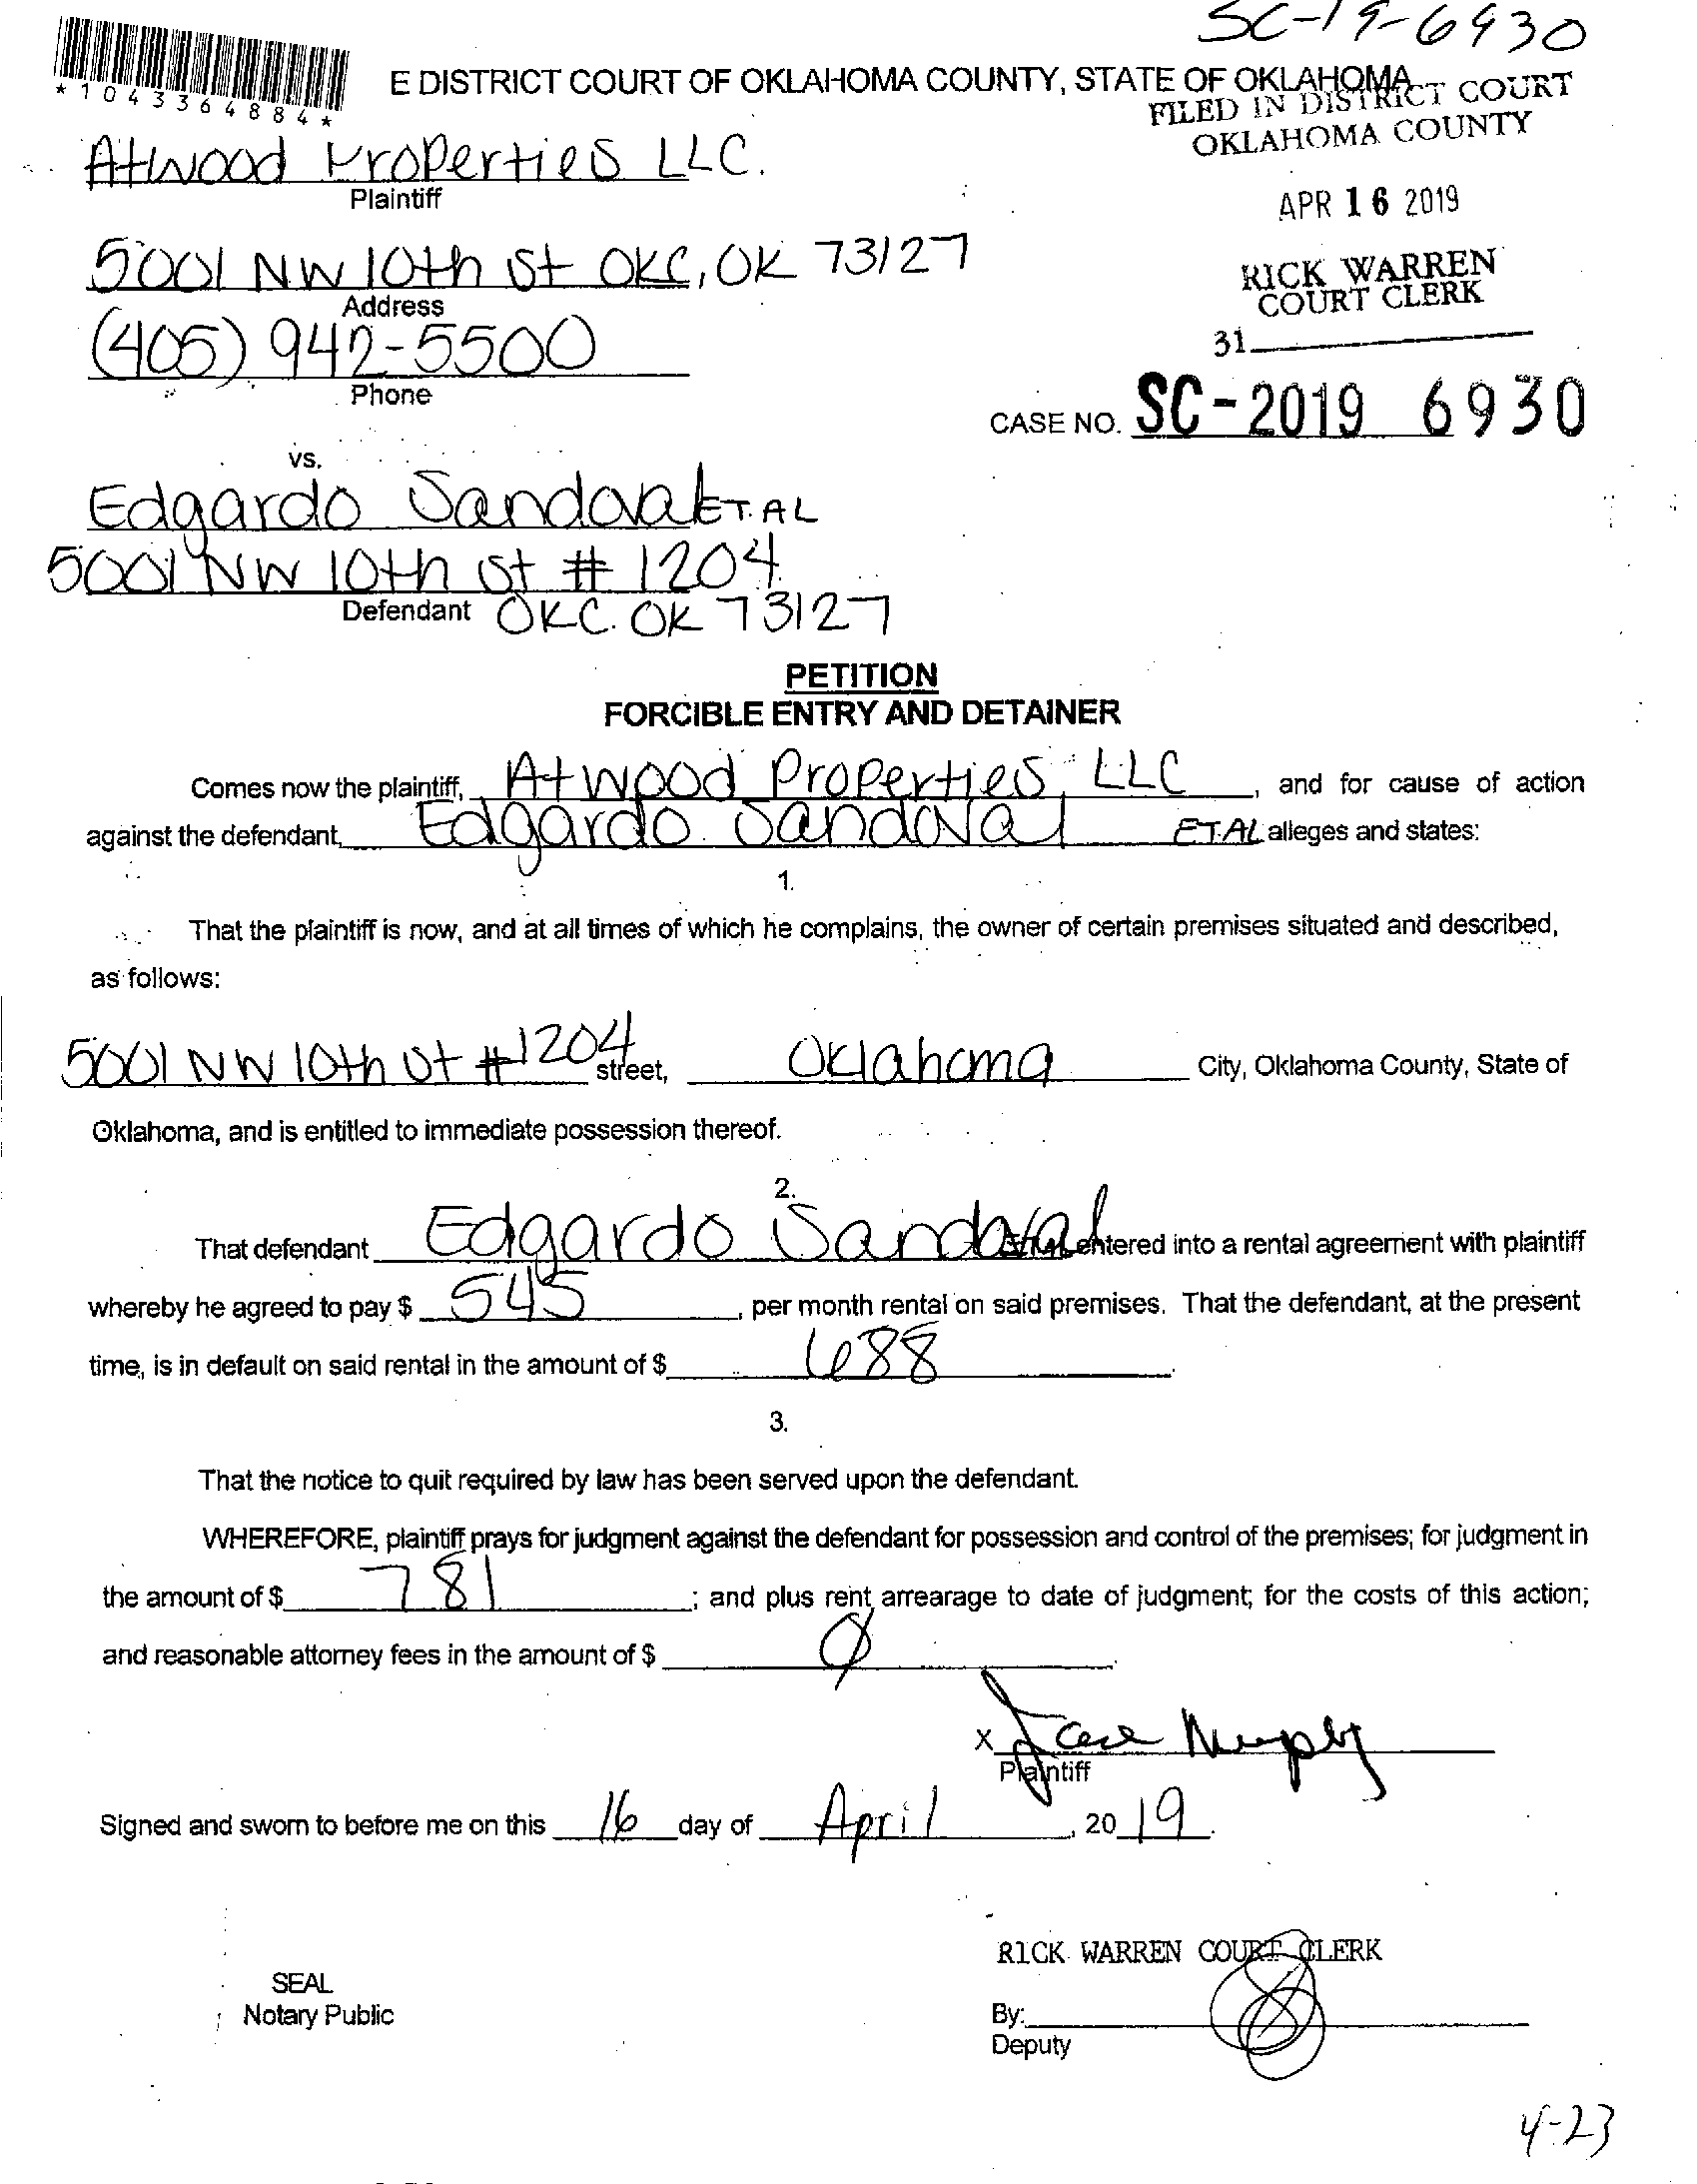 SC-19-6930
E DISTRICT COURT OF OKLAHOMA COUNTY, STATE OF OKLAHOMA
*1043364884*
FILED IN DISTRICT COURT
OKLAHOMA COUNTY
Atwood Properties LLC.
Plaintiff
APR 16 2019
5001 NW 10th St OKC, OK 73127
Address
RICK WARREN
COURT CLERK
(405) 942-5500
Phone
31
CASE NO. SC-2019 6930
vs.
Edgardo Sandoval ET. AL
5001 NW 10th St # 1204
Defendant OKC. OK 73127
PETITION
FORCIBLE ENTRY AND DETAINER
Comes now the plaintiff, Atwood Properties, LLC, and for cause of action
against the defendant, Edgardo Sandoval ET.AL alleges and states:
1.
That the plaintiff is now, and at all times of which he complains, the owner of certain premises situated and described,
as follows:
5001 NW 10th St #1204 street, Oklahoma City, Oklahoma County, State of
Oklahoma, and is entitled to immediate possession thereof.
2.
That defendant Edgardo Sandoval ET.AL entered into a rental agreement with plaintiff
whereby he agreed to pay $ 545, per month rental on said premises. That the defendant, at the present
time, is in default on said rental in the amount of $ 688.
3.
That the notice to quit required by law has been served upon the defendant.
WHEREFORE, plaintiff prays for judgment against the defendant for possession and control of the premises; for judgment in
the amount of $ 781; and plus rent arrearage to date of judgment; for the costs of this action;
and reasonable attorney fees in the amount of $ 0.
X Murphy
Plaintiff
Signed and sworn to before me on this 16 day of April, 2019.
RICK WARREN COURT CLERK
SEAL
Notary Public
By:
Deputy
4-23